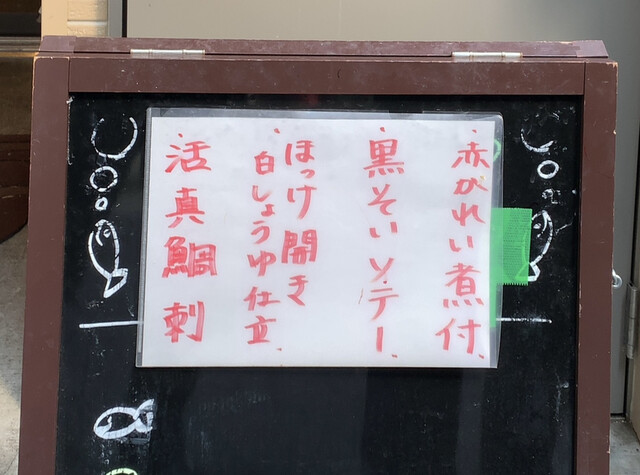 ・赤がれい煮付、
・黒そいソテー、
・ほっけ開き
白しょうゆ仕立、
・活真鯛刺